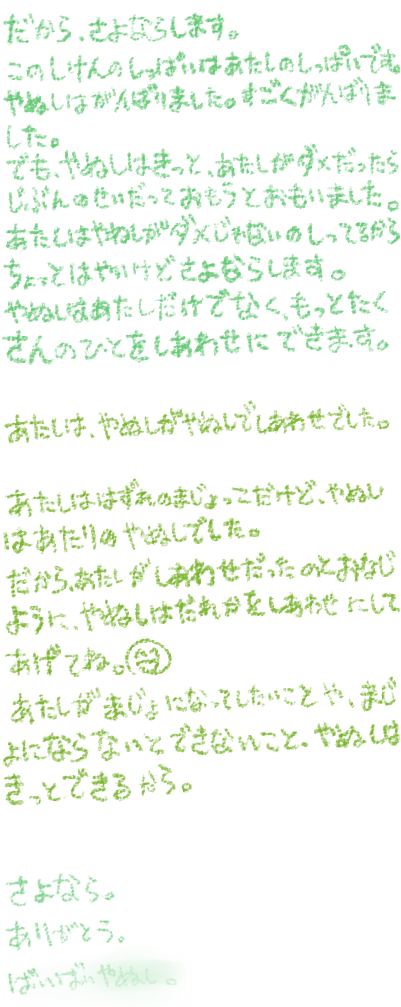 だから、さよならします。
このしけんのしっぱいはあたしのしっぱいです。
やぬしはがんばりました。すごくがんばりま
した。
でも、やぬしはきっと、あたしがダメだったら
じぶんのせいだっておもうとおもいました。
あたしはやぬしがダメじゃないのしってるから
ちょっとはやいけどさよならします。
やぬしはあたしだけでなく、もっとたく
さんのひとをしあわせにできます。
あたしは、やぬしがやぬしでしあわせでした。
あたしははずれのまじょっこだけど、やぬし
はあたりのやぬしでした。
だから、あたしがしあわせだったのとおなじ
ように、やぬしはだれかをしあわせにして
あげてね。
あたしがまじょになってしたいことや、まじ
ょにならないとできないこと、やぬしは
きっとできるから。
さよなら。
ありがとう。
ばいばいやぬし。